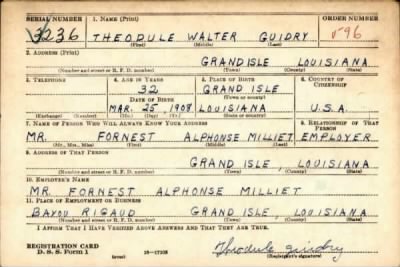 SERIAL NUMBER 1. NAME (Print) ORDER NUMBER
3236 THEODULE WALTER GUIDRY 596
(First) (Middle) (Last)
2. ADDRESS (Print)
GRAND ISLE LOUISIANA
(Number and street or R. F. D. number) (Town) (County) (State)
3. TELEPHONE 4. AGE IN YEARS 5. PLACE OF BIRTH 6. COUNTRY OF CITIZENSHIP
32 GRAND ISLE
DATE OF BIRTH (Town or county)
MAR. 25 1908 LOUISIANA U.S.A.
(Exchange) (Number) (Mo.) (Day) (Yr.) (State or country)
7. NAME OF PERSON WHO WILL ALWAYS KNOW YOUR ADDRESS 8. RELATIONSHIP OF THAT PERSON
MR. FORNEST ALPHONSE MILLIET EMPLOYER
(Mr., Mrs., Miss) (First) (Middle) (Last)
9. ADDRESS OF THAT PERSON
GRAND ISLE, LOUISIANA
(Number and street or R. F. D. number) (Town) (County) (State)
10. EMPLOYER'S NAME
MR. FORNEST ALPHONSE MILLIET
11. PLACE OF EMPLOYMENT OR BUSINESS
BAYOU RIGAUD GRAND ISLE, LOUISIANA
(Number and street or R. F. D. number) (Town) (County) (State)
I AFFIRM THAT I HAVE VERIFIED ABOVE ANSWERS AND THAT THEY ARE TRUE.
REGISTRATION CARD
D. S. S. Form 1 (over) 16—17105 Theodule Guidry
(Registrant's signature)